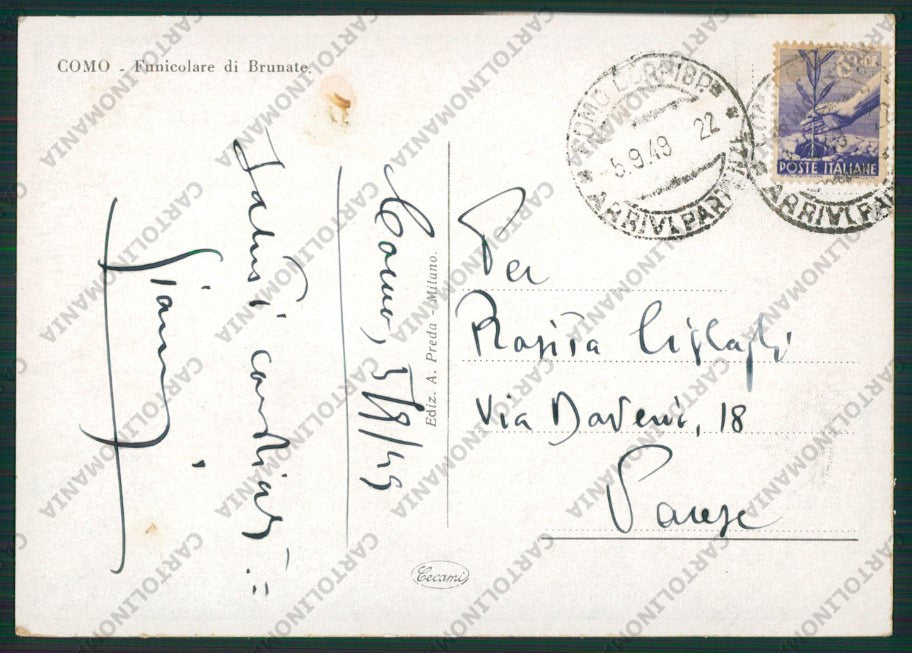 COMO - Funicolare di Brunate.
Saluti cordiali
Gianni
Como, 5/9/49
Ediz. A. Preda - Milano.
COMO CORRISP.
-5.9.49 22
ARRIVI PARTENZE
POSTE ITALIANE
ARRIVI PAR
Per
Rosita
Via Daverio, 18
Varese
Cecami
CARTOLINOMANIA